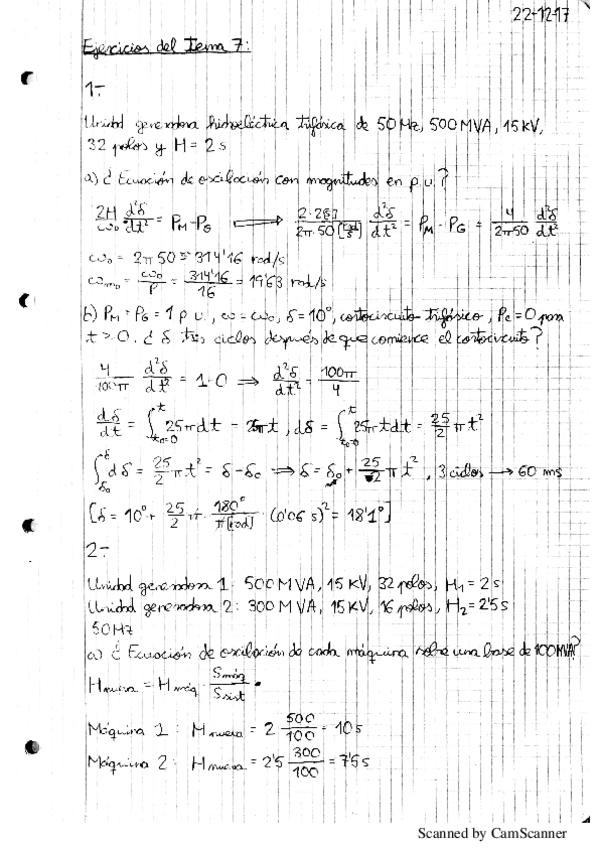 22-12-17
Ejercicios del Tema 7:
1-
Unidad generadora hidroeléctrica trifásica de 50 Hz, 500 MVA, 15 kV,
32 polos y H = 2 s
a) ¿Ecuación de oscilación con magnitudes en p.u.?
2H/ω₀ d²δ/dt² = P_M - P_G ⟹ 2·2[s]/2π·50[rad/s] d²δ/dt² = P_M - P_G = 4/2π50 d²δ/dt²
ω₀ = 2π 50 = 314'16 rad/s
ω_m₀ = ω₀/P = 314'16/16 = 19'63 rad/s
b) P_M = P_G = 1 p.u., ω = ω₀, δ = 10°, cortocircuito trifásico, P_G = 0 para
t > 0. ¿δ tres ciclos después de que comience el cortocircuito?
4/100π d²δ/dt² = 1-0 ⟹ d²δ/dt² = 100π/4
dδ/dt = ∫_{t₀=0}^{t} 25π dt = 25πt, dδ = ∫_{t₀=0}^{t} 25πt dt = 25/2 πt²
∫_{δ₀}^{δ} dδ = 25/2 πt² = δ-δ₀ ⟹ δ = δ₀ + 25/2 πt², 3 ciclos → 60 ms
[δ = 10° + 25/2 π · 180°/π[rad] · (0'06 s)² = 18'1°]
2-
Unidad generadora 1: 500 MVA, 15 KV, 32 polos, H₁ = 2 s
Unidad generadora 2: 300 MVA, 15 KV, 16 polos, H₂ = 2'5 s
50 Hz
a) ¿Ecuación de oscilación de cada máquina sobre una base de 100 MVA?
H nueva = H máq · S máq/S sist
Máquina 1: H nueva = 2 500/100 = 10 s
Máquina 2: H nueva = 2'5 300/100 = 7'5 s
Scanned by CamScanner